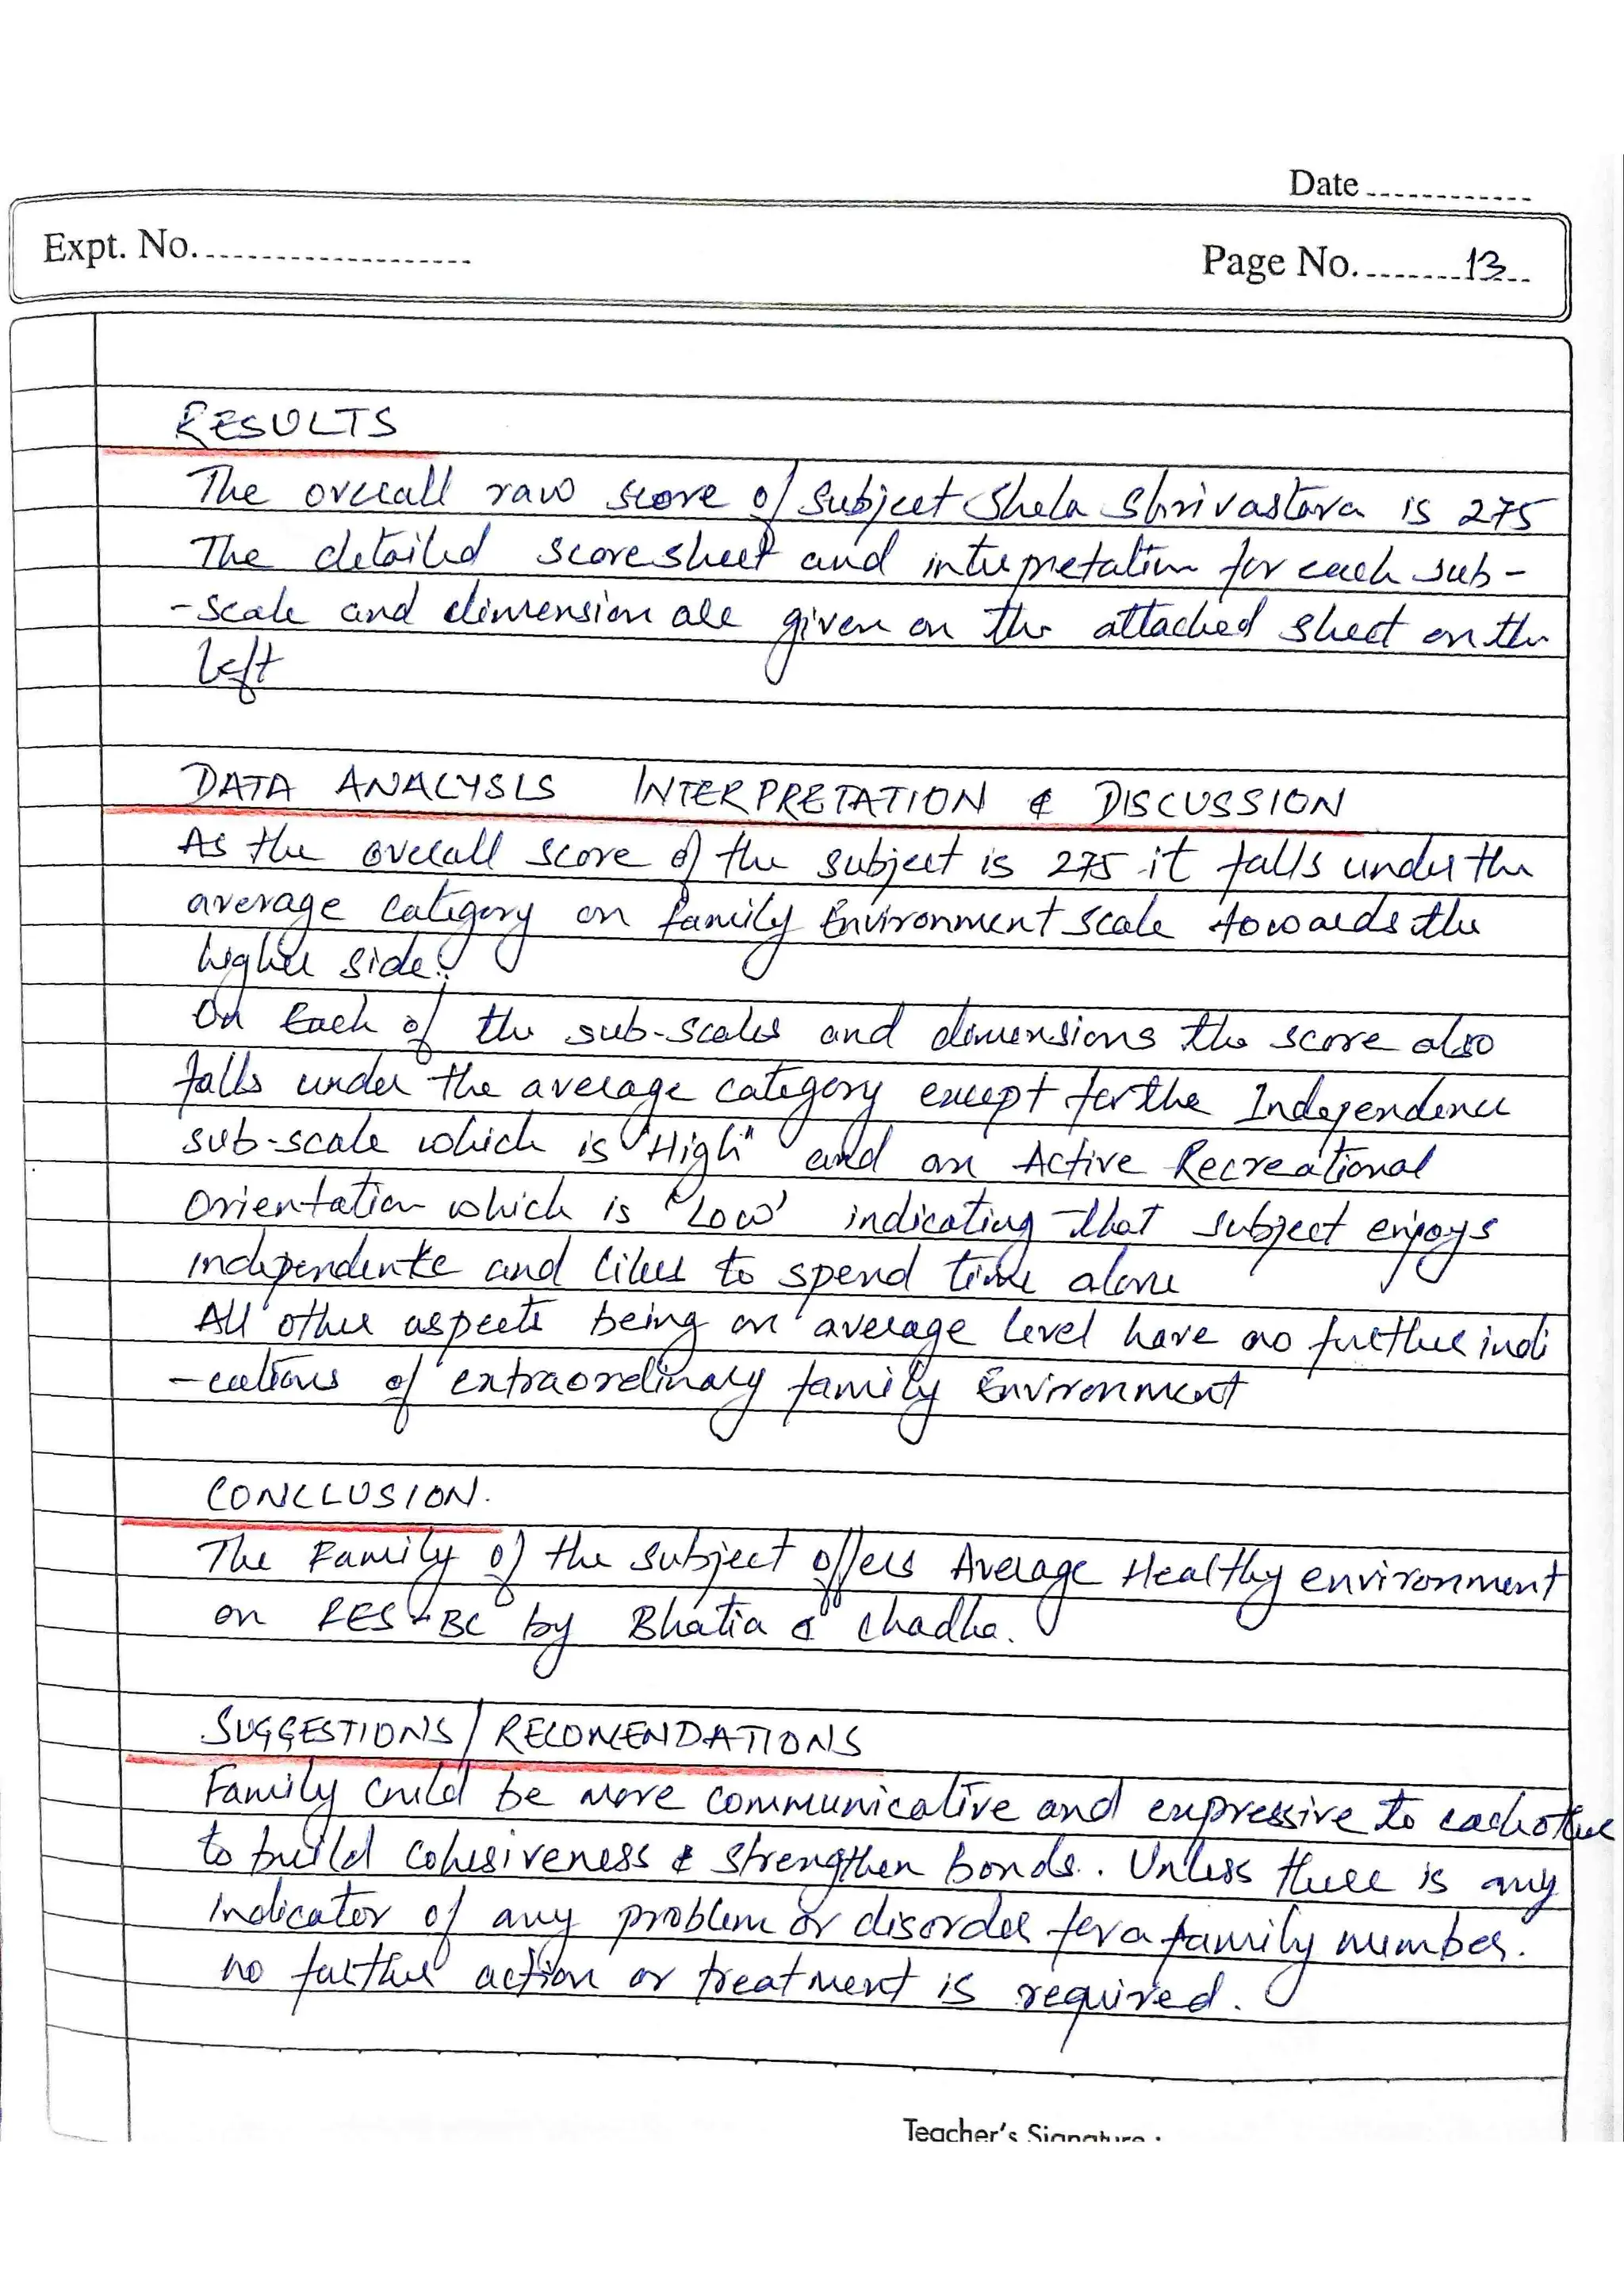 Date
Expt. No.
Page No. 13
RESULTS
The overall raw score of subject Shela Shrivastava is 275
The detailed scoresheet and interpretation for each sub-
-scale and dimension are given on the attached sheet on the
left
DATA ANALYSIS INTERPRETATION & DISCUSSION
As the overall score of the subject is 275 it falls under the
average category on family Environment scale towards the
higher side.
On Each of the sub-scales and dimensions the score also
falls under the average category except for the Independence
sub-scale which is "High" and on Active Recreational
Orientation which is "Low" indicating that subject enjoys
independente and likes to spend time alone
All other aspects being on average level have no further indi
-cations of extraordinary family Environment
CONCLUSION.
The Family of the subject offers Average Healthy environment
on FES-BC by Bhatia & Chadha.
SUGGESTIONS/RECOMENDATIONS
Family could be more communicative and expressive to eachother
to build cohesiveness & strengthen bonds. Unless there is any
indicator of any problem or disorder for a family member.
no further action or treatment is required.
Teacher's Signature :